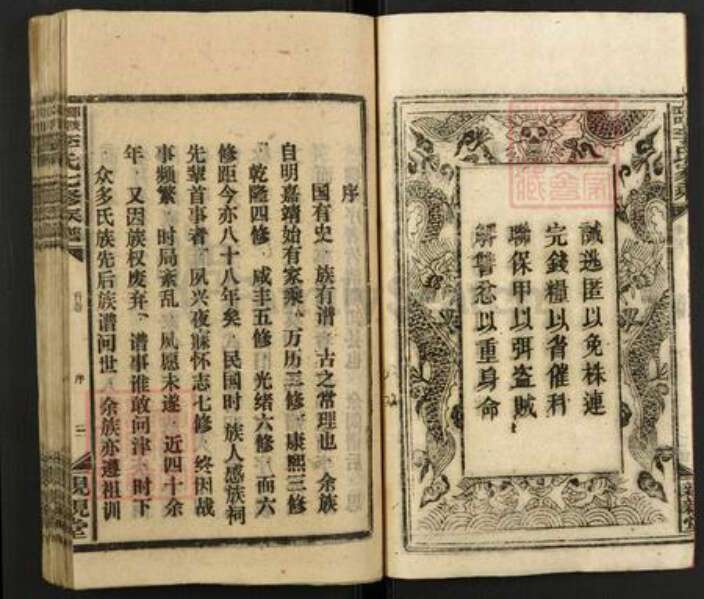 誡逃匿以免株連
完錢糧以省催科
聯保甲以弭盗賊
解讐忿以重身命
序
国有史，族有谱，古之常理也。余族
自明嘉靖始有家乘，万历二修，康熙三修
，乾隆四修，咸丰五修，光绪六修，而六
修距今亦八十八年矣。民国时，族人感族祠
先辈首事者，夙兴夜寐怀志七修，终因战
事频繁，时局紊乱，夙愿未遂。近四十余
年，又因族权废弃，谱事谁敢问津。时下
，众多氏族先后族谱问世，余族亦遵祖训
李氏七修族谱
序
二
親親堂